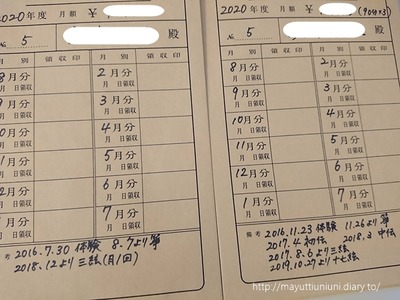 2020年度 月額 ￥
No. 5 殿
月別 領収印 月別 領収印
8月分 2月分
月 日領収 月 日領収
9月分 3月分
月 日領収 月 日領収
10月分 4月分
月 日領収 月 日領収
11月分 5月分
月 日領収 月 日領収
12月分 6月分
月 日領収 月 日領収
1月分 7月分
月 日領収 月 日領収
考 2016.7.30 体験 8.7より箏
2018.12より三絃(月1回)
2020年度 月額 ￥ (90分×3)
No. 5 殿
月別 領収印 月別 領収印
8月分 2月分
月 日領収 月 日領収
9月分 3月分
月 日領収 月 日領収
10月分 4月分
月 日領収 月 日領収
11月分 5月分
月 日領収 月 日領収
12月分 6月分
月 日領収 月 日領収
1月分 7月分
月 日領収 月 日領収
備考 2016.11.23 体験 11.26より箏
2017.4 初伝 2018.3 中伝
2017.8.6より三絃
2019.10.27より十七絃
http://mayuttiuniuni.diary.to/